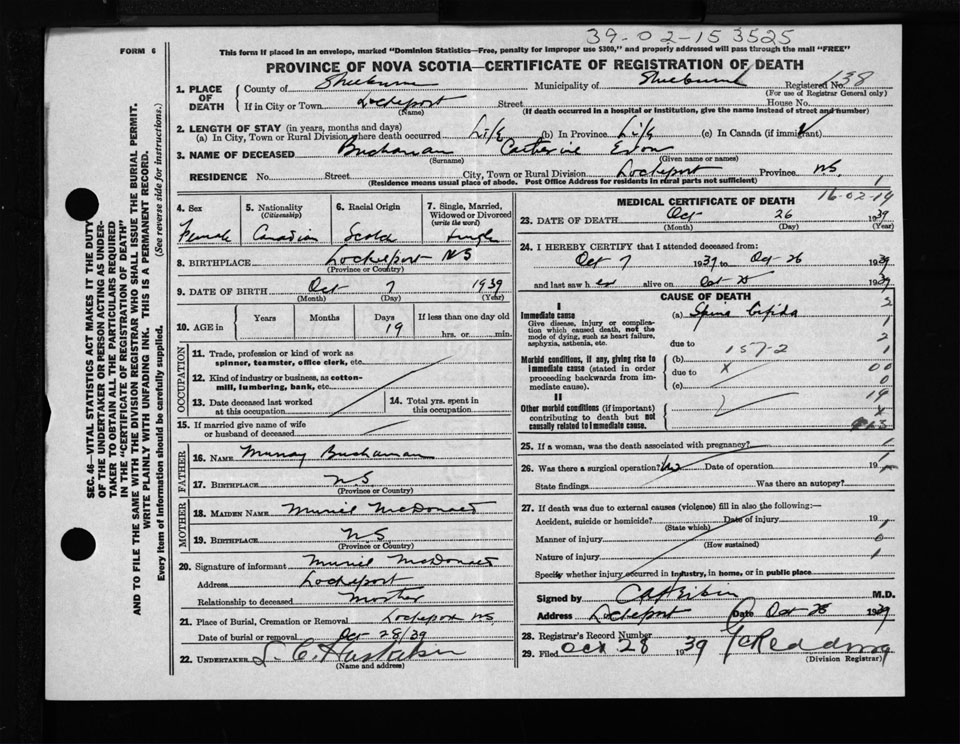 39-02-15 3525
FORM 6
This form if placed in an envelope, marked "Dominion Statistics—Free, penalty for improper use $300," and properly addressed will pass through the mail "FREE"
PROVINCE OF NOVA SCOTIA—CERTIFICATE OF REGISTRATION OF DEATH
SEC. 46—VITAL STATISTICS ACT MAKES IT THE DUTY
OF THE UNDERTAKER OR PERSON ACTING AS UNDER-
TAKER TO OBTAIN ALL THE PARTICULARS REQUIRED
IN THE "CERTIFICATE OF REGISTRATION OF DEATH"
AND TO FILE THE SAME WITH THE DIVISION REGISTRAR WHO SHALL ISSUE THE BURIAL PERMIT.
WRITE PLAINLY WITH UNFADING INK. THIS IS A PERMANENT RECORD.
Every item of information should be carefully supplied. (See reverse side for instructions.)
1. PLACE OF DEATH
County of Shelburne Municipality of Shelburne Registered No. 138
(For use of Registrar General only)
If in City or Town Lockeport Street House No.
(Name) (If death occurred in a hospital or institution, give the name instead of street and number)
2. LENGTH OF STAY (in years, months and days)
(a) In City, Town or Rural Division where death occurred Life (b) In Province Life (c) In Canada (if immigrant)
3. NAME OF DECEASED Buchanan Catherine
(Surname) (Given name or names)
RESIDENCE No. Street City, Town or Rural Division Lockeport Province NS.
(Residence means usual place of abode. Post Office Address for residents in rural parts not sufficient) 1
4. Sex
Female
5. Nationality
(Citizenship)
Canadian
6. Racial Origin
Scotch
7. Single, Married,
Widowed or Divorced
(write the word)
Single
8. BIRTHPLACE Lockeport NS
(Province or Country)
9. DATE OF BIRTH Oct 7 1939
(Month) (Day) (Year)
10. AGE in Years Months Days 19 If less than one day old
hrs. or min.
OCCUPATION
11. Trade, profession or kind of work as
spinner, teamster, office clerk, etc.
12. Kind of industry or business, as cotton-
mill, lumbering, bank, etc.
13. Date deceased last worked
at this occupation
14. Total yrs. spent in
this occupation
15. If married give name of wife
or husband of deceased
FATHER
16. NAME Murray Buchanan
17. BIRTHPLACE N.S
(Province or Country)
MOTHER
18. MAIDEN NAME Muriel McDonald
19. BIRTHPLACE NS
(Province or Country)
20. Signature of informant Muriel McDonald
Address Lockeport
Relationship to deceased Mother
21. Place of Burial, Cremation or Removal Lockeport NS.
Date of burial or removal Oct 28/39
22. UNDERTAKER L. C.
(Name and address)
MEDICAL CERTIFICATE OF DEATH 16-02-14
23. DATE OF DEATH Oct 26 1939
(Month) (Day) (Year)
24. I HEREBY CERTIFY that I attended deceased from:
Oct 7 1939 to Oct 26 1939
and last saw her alive on Oct 25 1939
CAUSE OF DEATH
I
Immediate cause (a) Spina bifida
Give disease, injury or complica-
tion which caused death, not the
mode of dying, such as heart failure,
asphyxia, asthenia, etc.
due to
157-2
Morbid conditions, if any, giving rise to
immediate cause (stated in order
proceeding backwards from im-
mediate cause).
(b)
due to X
(c)
II
Other morbid conditions (if important)
contributing to death but not
causally related to immediate cause.
25. If a woman, was the death associated with pregnancy?
26. Was there a surgical operation? No Date of operation 19
State findings Was there an autopsy?
27. If death was due to external causes (violence) fill in also the following:—
Accident, suicide or homicide? Date of injury 19
(State which)
Manner of injury
(How sustained)
Nature of injury
Specify whether injury occurred in industry, in home, or in public place
Signed by M.D.
Address Lockeport Date Oct 28 1939
28. Registrar's Record Number
29. Filed Oct 28 1939 Redding
(Division Registrar)